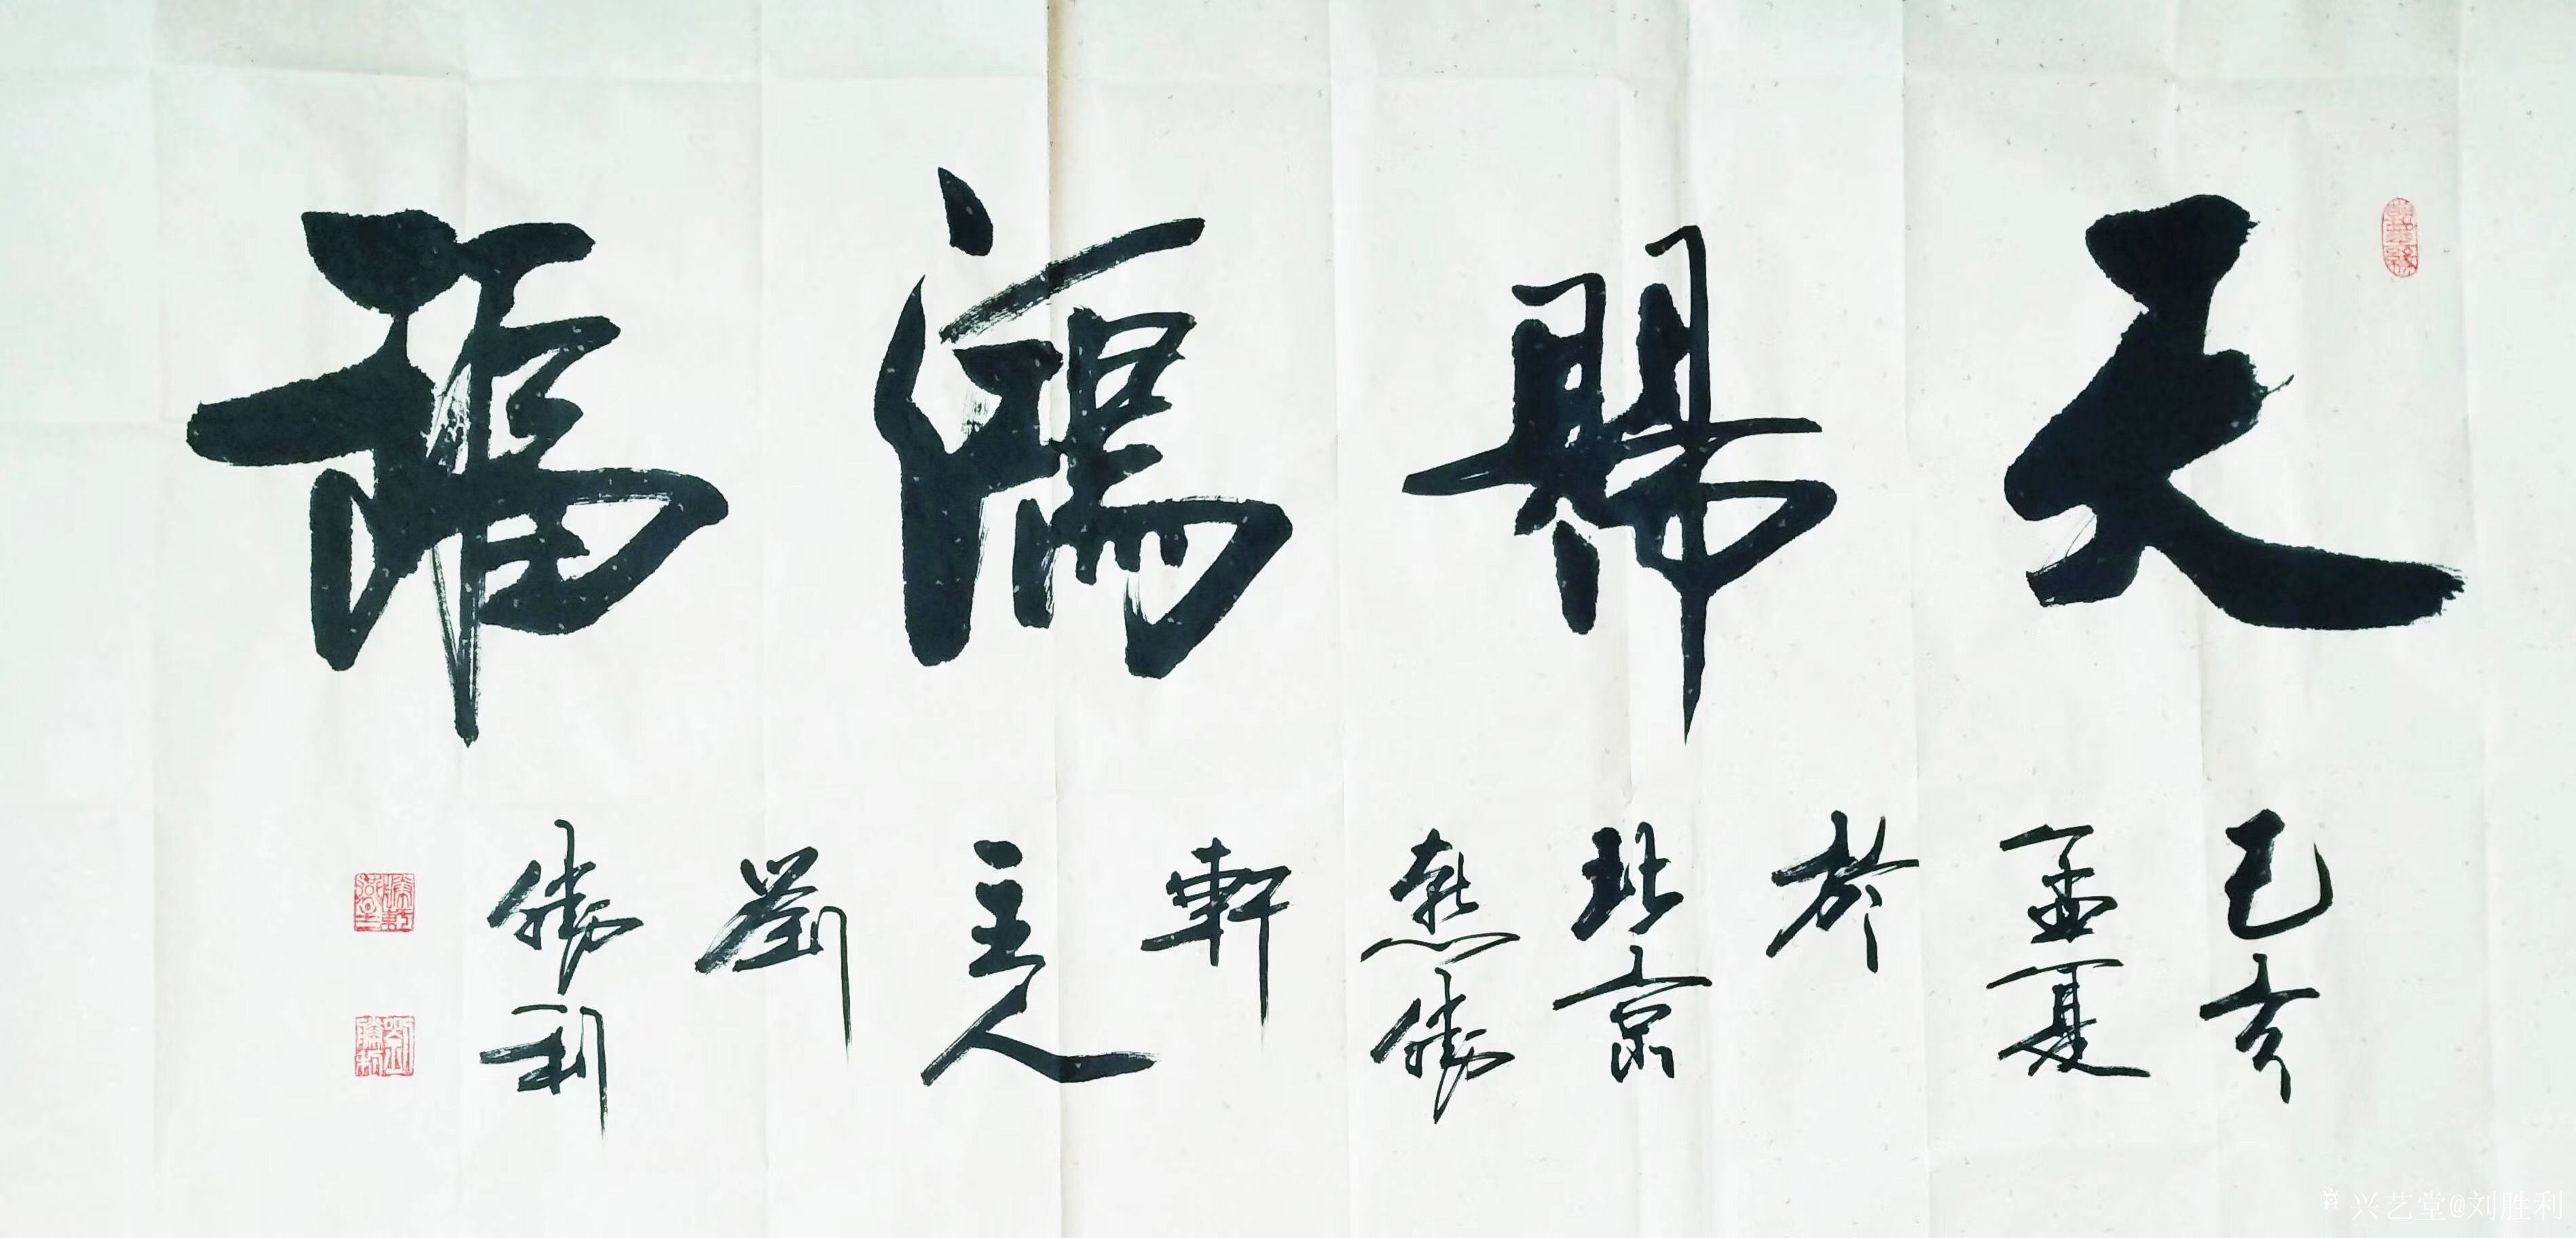 天賜鴻福
己亥
孟夏
於
北京
燕勝
軒
主人
劉
勝利
兴艺堂@刘胜利